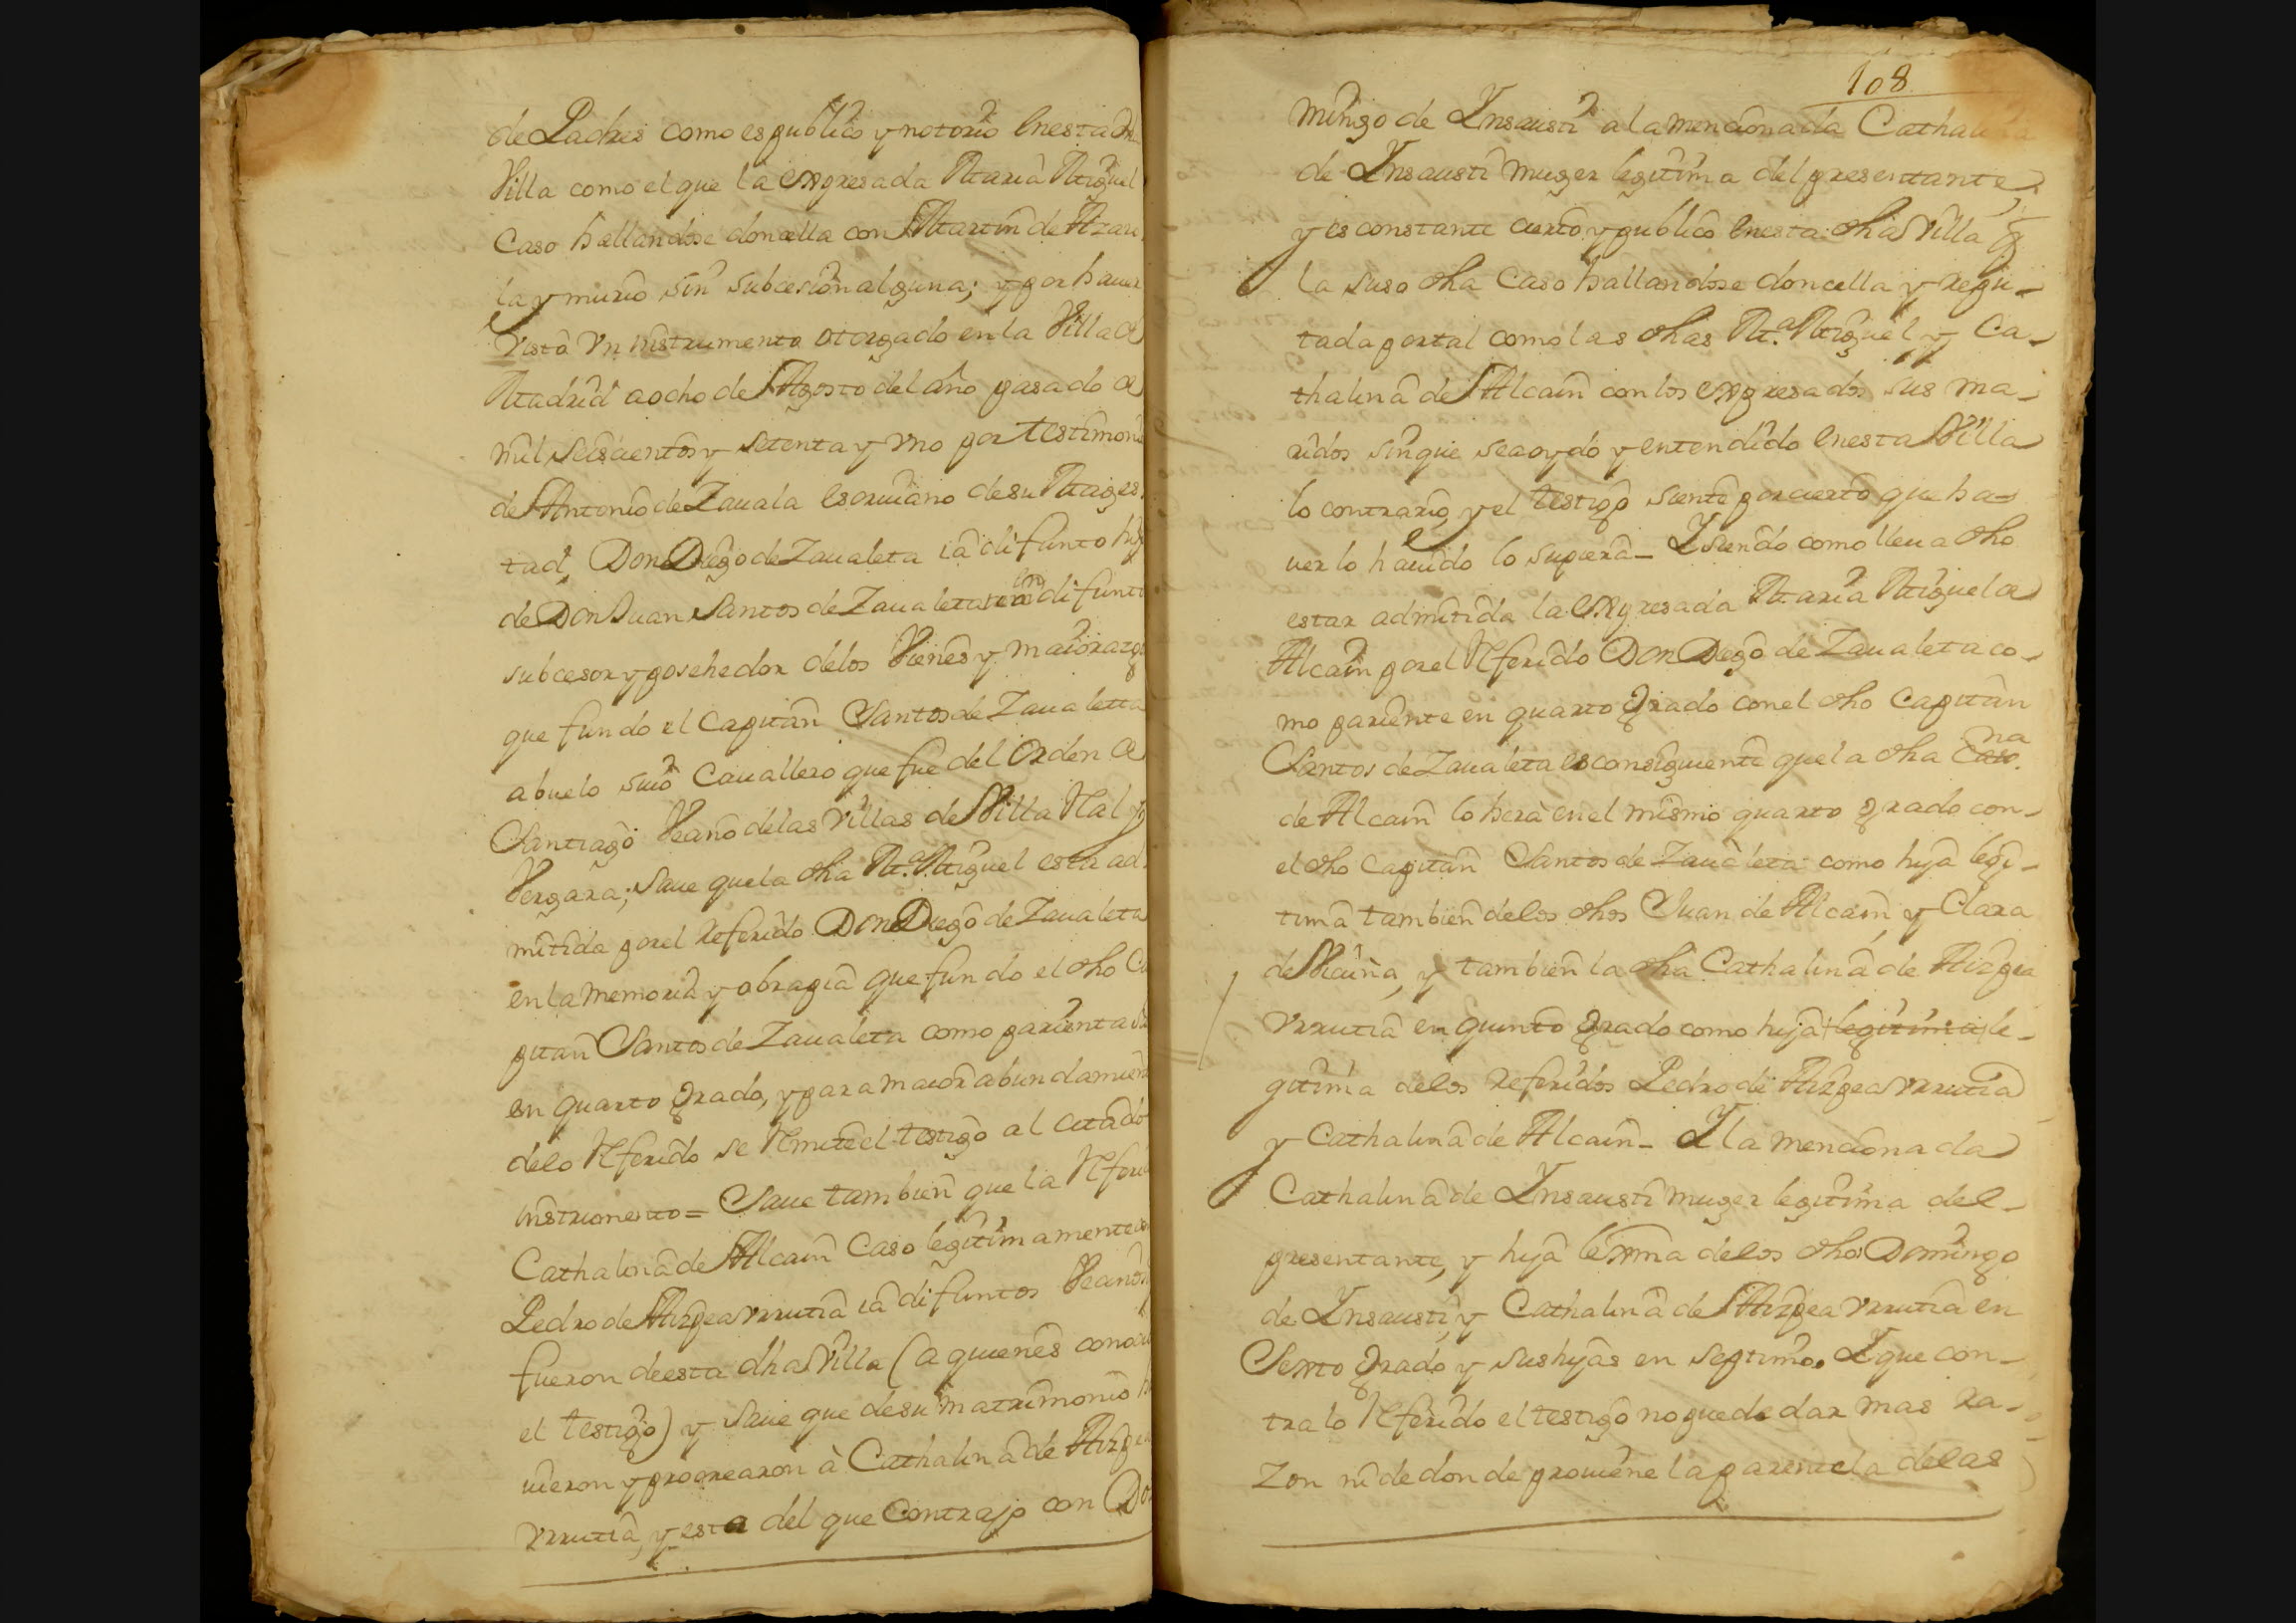 de Padres como es publico y notorio en esta dha
Villa como el que la expresada Maria Miguel
Caso hallandose doncella con Martin de Azaro
la y murio sin subcesion alguna; y por hauer
visto vn instrumento otorgado en la Villa de
Madrid a ocho de Agosto del año pasado de
mil seiscientos y setenta y vno por testimonio
de Antonio de Zauala escriuano de su Mages
tad, Don Diego de Zaualeta ia difunto hijo
de Don Juan Santos de Zaualeta tan bien difunto
subcesor y posehedor de los Vienes y maiorazgo
que fundo el Capitan Santos de Zaualetta
abuelo suio Cauallero que fue del Orden de
Santiago Veano de las Villas de Villa Rl y
Vergara; Saue que la dha Ma. Miguel esta ad
mitida por el referido Don Diego de Zaualeta
en la memoria y obra pia que fundo el dho Ca
pitan Santos de Zaualeta como parienta su
en quarto grado, y para maior abundamiento
de lo Referido se Remite el testigo al citado
instrumento = Saue tambien que la Referida
Cathalina de Alcain Caso legitimamente con
Pedro de Aizpea vrrutia ia difuntos Veanos q
fueron de esta dha Villa (a quienes conocio
el testigo) y saue que de su matrimonio hu
uieron y procrearon à Cathalina de Aizpea
vrrutia, y esta del que Contrajo con Do
108
mingo de Ynsausti a la mencionada Cathalina
de Ynsausti muger legitima del presentante,
y es constante cierto y publico en esta dha Villa q
la suso dha Caso hallandose doncella y repu-
tada por tal como las dhas Ma. Miguel y Ca-
thalina de Alcain con los expresados sus ma-
ridos sin que sea oydo y entendido en esta Villa
lo contrario, y el testigo siente por cierto que ha-
uer lo hauido lo supiera - Y siendo como lleua dho
estar admitida la expresada Maria Miguel de
Alcain por el Referido Don Diego de Zaualeta co-
mo pariente en quarto grado con el dho Capitan
Santos de Zaualeta es consiguiente que la dha Cna Caso.
de Alcain lo hera en el mismo quarto grado con-
el dho Capitan Santos de Zaualeta como hija legi-
tima tambien de los dhos Juan de Alcain, y Clara
de Vicuña, y tambien la dha Cathalina de Aizpea
vrrutia en quinto grado como hija legitima le-
gitima de los referidos Pedro de Aizpea vrrutia
y Cathalina de Alcain - Y la mencionada
Cathalina de Ynsausti muger legitima del-
presentante, y hija lexma de los dhos Domingo
de Ynsausti, y Cathalina de Aizpea vrrutia en
Sexto grado, y sus hijas en septimo. Y que con-
tra lo Referido el testigo no puede dar mas ra-
zon ni de donde prouiene la parentela de las